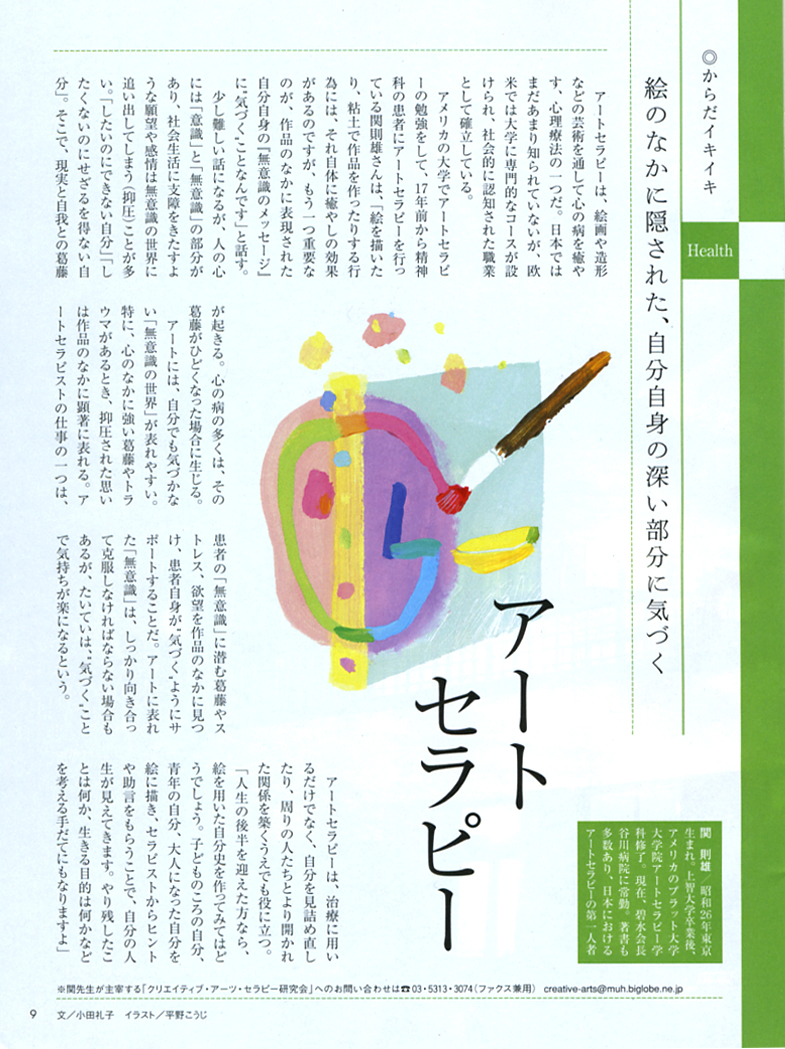 ◎からだイキイキ
Health
絵のなかに隠された、自分自身の深い部分に気づく
アートセラピー
アートセラピーは、絵画や造形
などの芸術を通して心の病を癒や
す、心理療法の一つだ。日本では
まだあまり知られていないが、欧
米では大学に専門的なコースが設
けられ、社会的に認知された職業
として確立している。
アメリカの大学でアートセラピ
ーの勉強をして、17年前から精神
科の患者にアートセラピーを行っ
ている関則雄さんは、「絵を描いた
り、粘土で作品を作ったりする行
為には、それ自体に癒やしの効果
があるのですが、もう一つ重要な
のが、作品のなかに表現された
自分自身の『無意識のメッセージ』
に〝気づく〟ことなんです」と話す。
少し難しい話になるが、人の心
には「意識」と「無意識」の部分が
あり、社会生活に支障をきたすよ
うな願望や感情は無意識の世界に
追い出してしまう（抑圧）ことが多
い。「したいのにできない自分」「し
たくないのにせざるを得ない自
分」。そこで、現実と自我との葛藤
が起きる。心の病の多くは、その
葛藤がひどくなった場合に生じる。
アートには、自分でも気づかな
い「無意識の世界」が表れやすい。
特に、心のなかに強い葛藤やトラ
ウマがあるとき、抑圧された思い
は作品のなかに顕著に表れる。ア
ートセラピストの仕事の一つは、
患者の「無意識」に潜む葛藤やス
トレス、欲望を作品のなかに見つ
け、患者自身が〝気づく〟ようにサ
ポートすることだ。アートに表れ
た「無意識」は、しっかり向き合っ
て克服しなければならない場合も
あるが、たいていは、〝気づく〟こと
で気持ちが楽になるという。
アートセラピーは、治療に用い
るだけでなく、自分を見詰め直し
たり、周りの人たちとより開かれ
た関係を築くうえでも役に立つ。
「人生の後半を迎えた方なら、
絵を用いた自分史を作ってみてはど
うでしょう。子どものころの自分、
青年の自分、大人になった自分を
絵に描き、セラピストからヒント
や助言をもらうことで、自分の人
生が見えてきます。やり残したこ
とは何か、生きる目的は何かなど
を考える手だてにもなりますよ」
関 則雄／昭和26年東京
生まれ。上智大学卒業後、
アメリカのプラット大学
大学院アートセラピー学
科修了。現在、碧水会長
谷川病院に常勤。著書も
多数あり、日本における
アートセラピーの第一人者
※関先生が主宰する「クリエイティブ・アーツ・セラピー研究会」へのお問い合わせは☎03・5313・3074（ファクス兼用） creative-arts@muh.biglobe.ne.jp
9 文／小田礼子 イラスト／平野こうじ